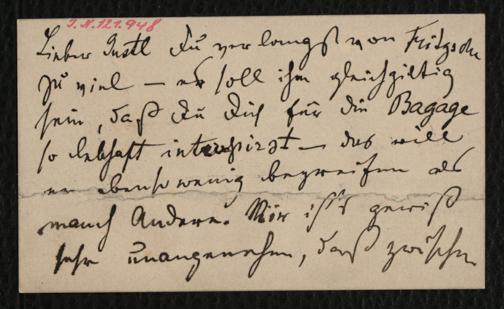 I.N.121.948
Lieber Gustl Du verlangst von Fritzsche
zu viel – es soll ihm gleichgiltig
sein, daß Du Dich für die Bagage
so lebhaft interessirst – das will
er ebensowenig begreifen als
manch Andere. Mir ist's gewiß
sehr unangenehm, daß zwischen